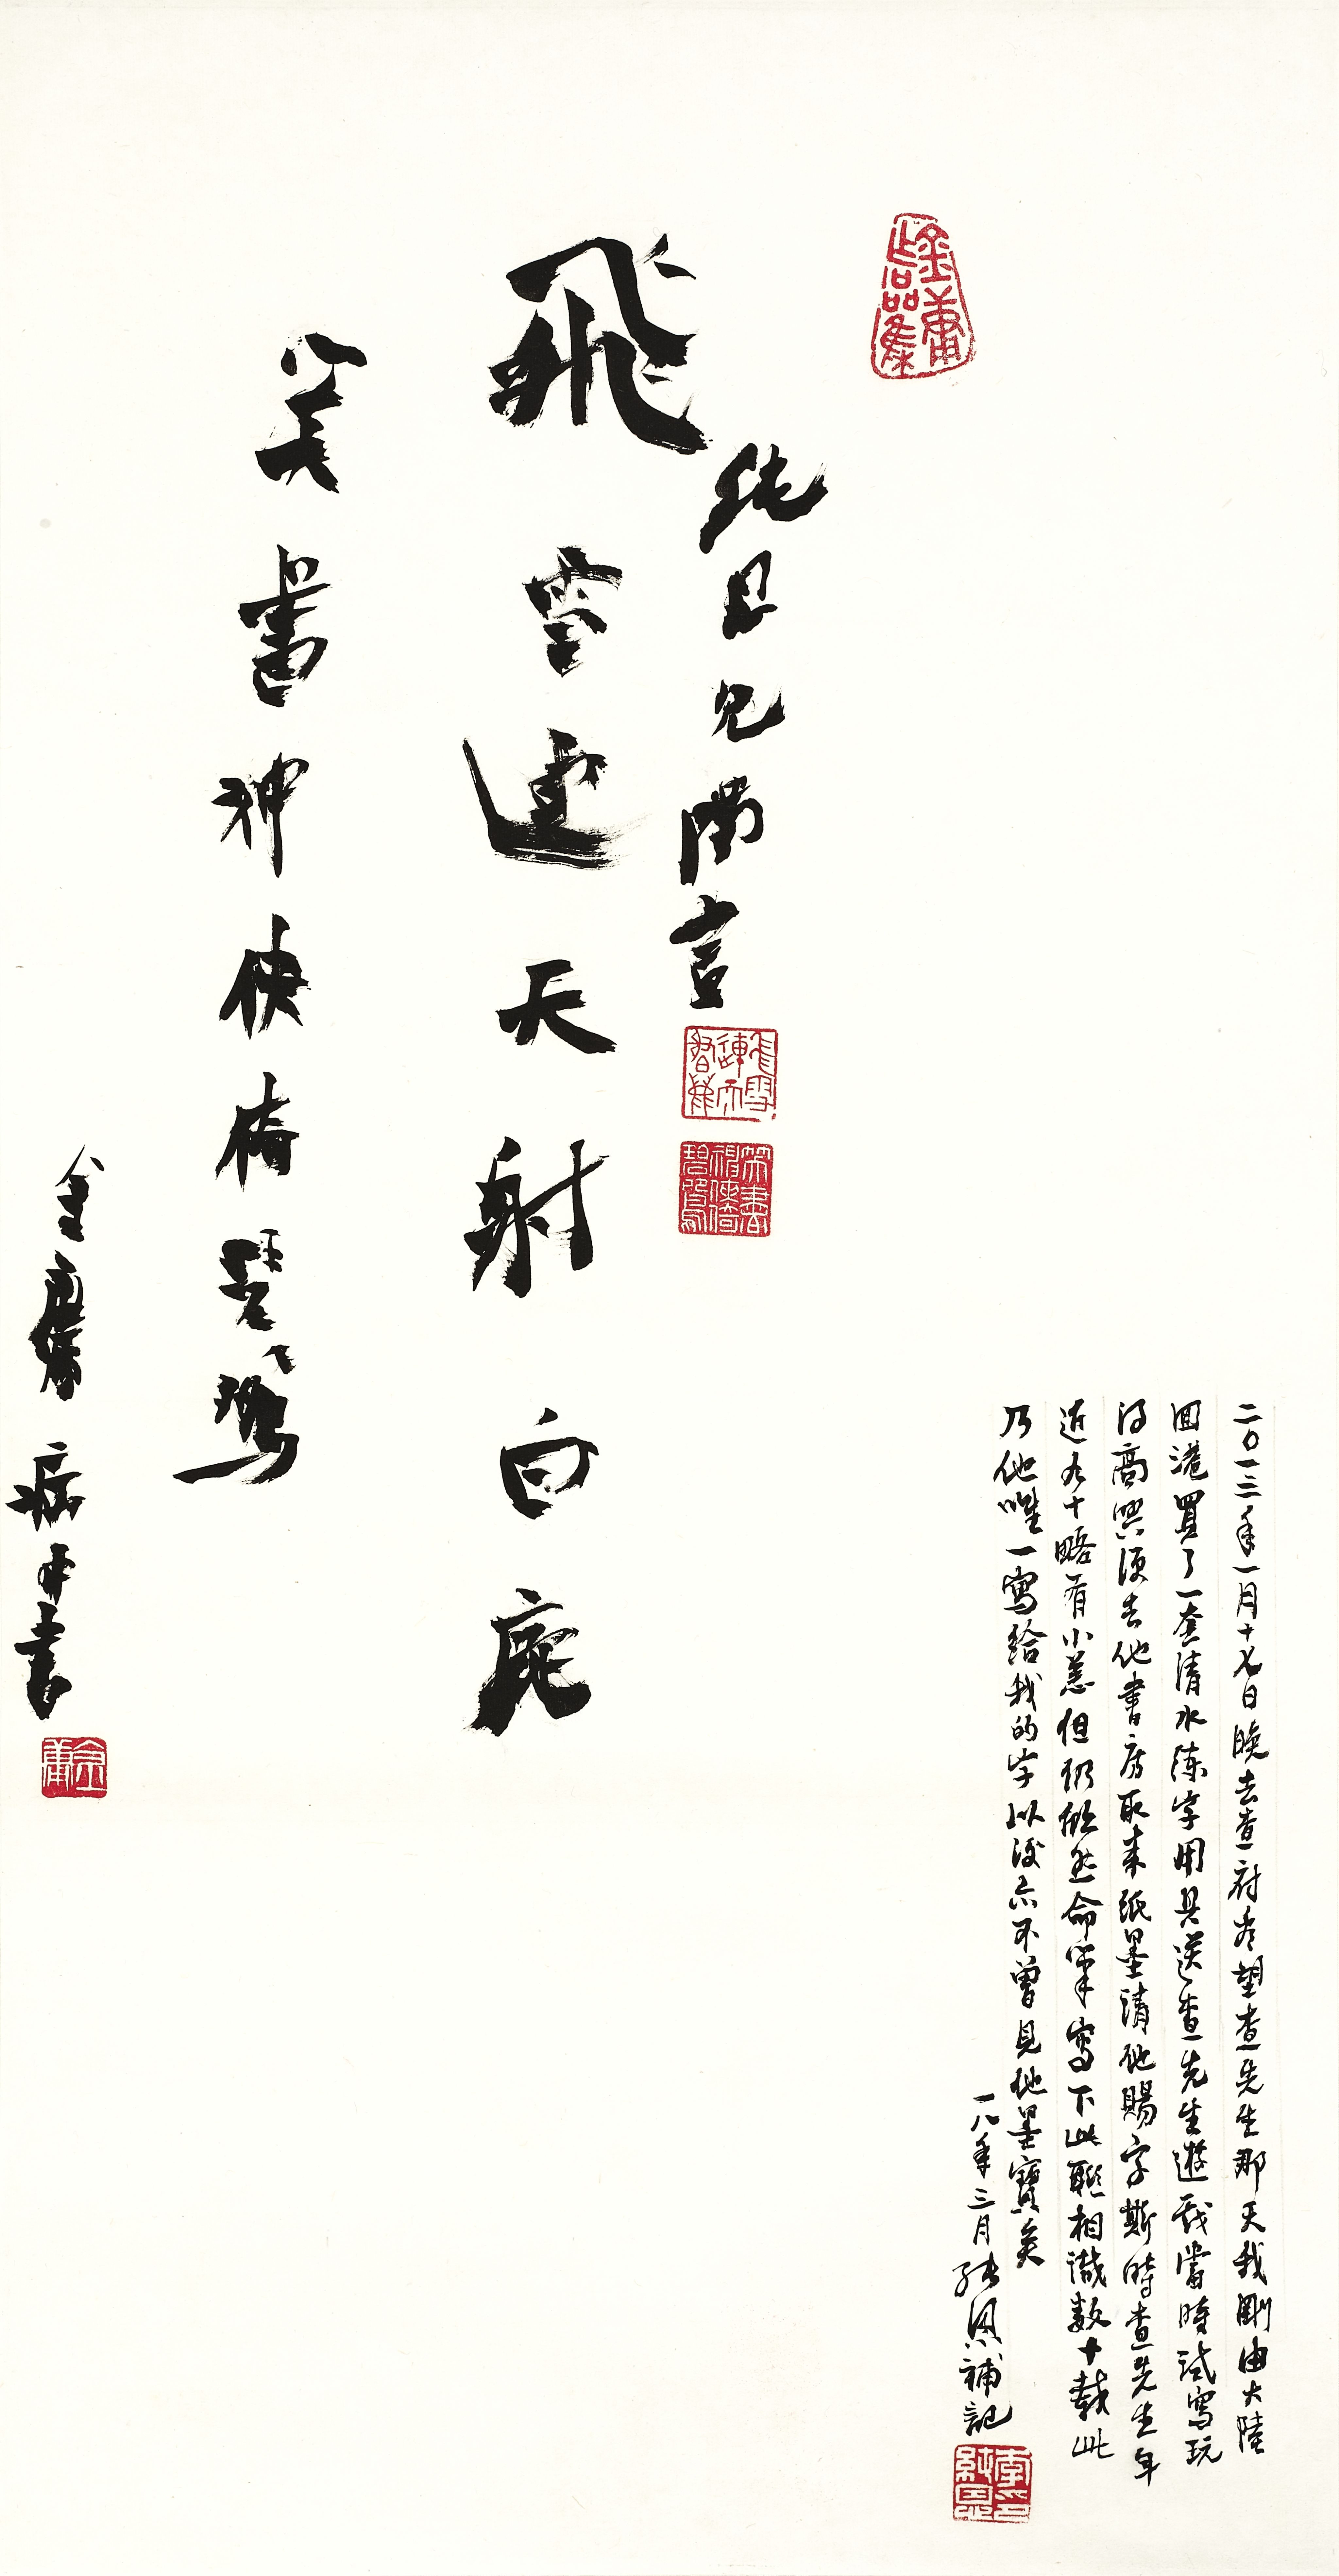 二〇一三年一月十七日晚去查府看望查先生那天我剛由大陸
回港買了一套清水練字用具送查先生遊戲當時試寫玩
得高興便去他書房取來紙墨請他賜字斯時查先生年
近九十略有小恙但仍欣然命筆寫下此聯相識數十載此
乃他唯一寫給我的字以後亦不曾見他墨寶矣
一八年三月純恩補記
李純恩印
金庸作品集
純恩兄
飛雪連天射白鹿
笑書神俠倚碧鴛
飛雪連天射白鹿
笑書神俠倚碧鴛
金庸病中書
金庸